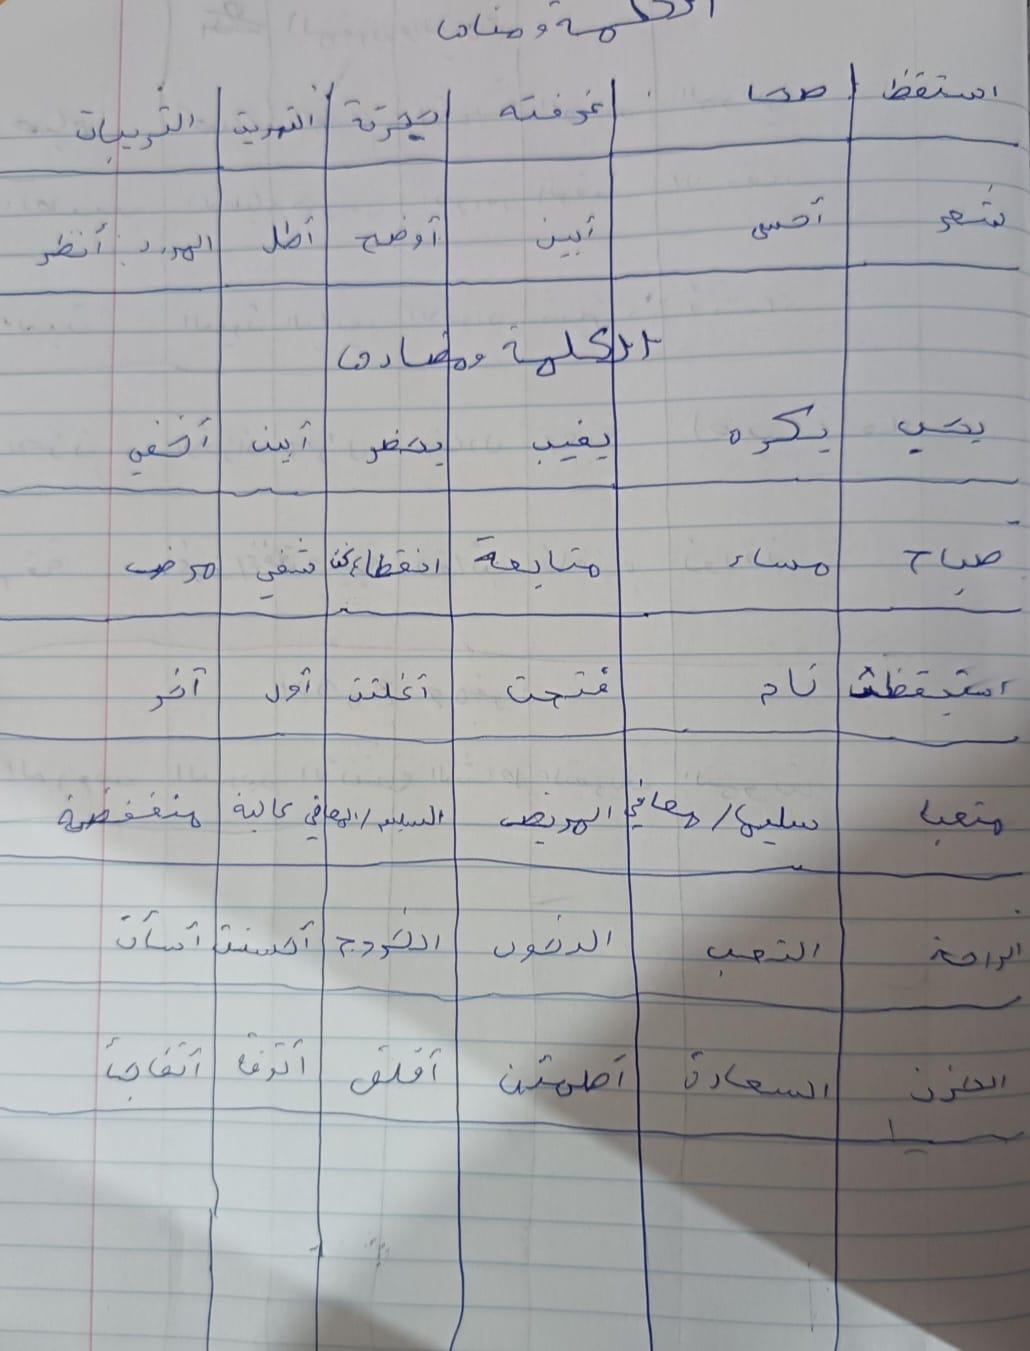 الكلمة ومعناها
استقظ صحا غرفته حجرته التمرين التدريبات
شعر أحسى أبين أوضح أطل أنظر
الكلمة ومضادها
يحب يكره يغيب يحضر أبين أخفي
صباح مساء متابعة انقطاع عن شفي مرض
استيقظت نام فتحت أغلقت أول آخر
متعبا سليما/معافي المريض السليم/المعافي عالية منخفضة
الراحة التعب الدخول الخروج أحسنت أسأت
الحزن السعادة أطمئن أقلق أتوقع أتفاجأ